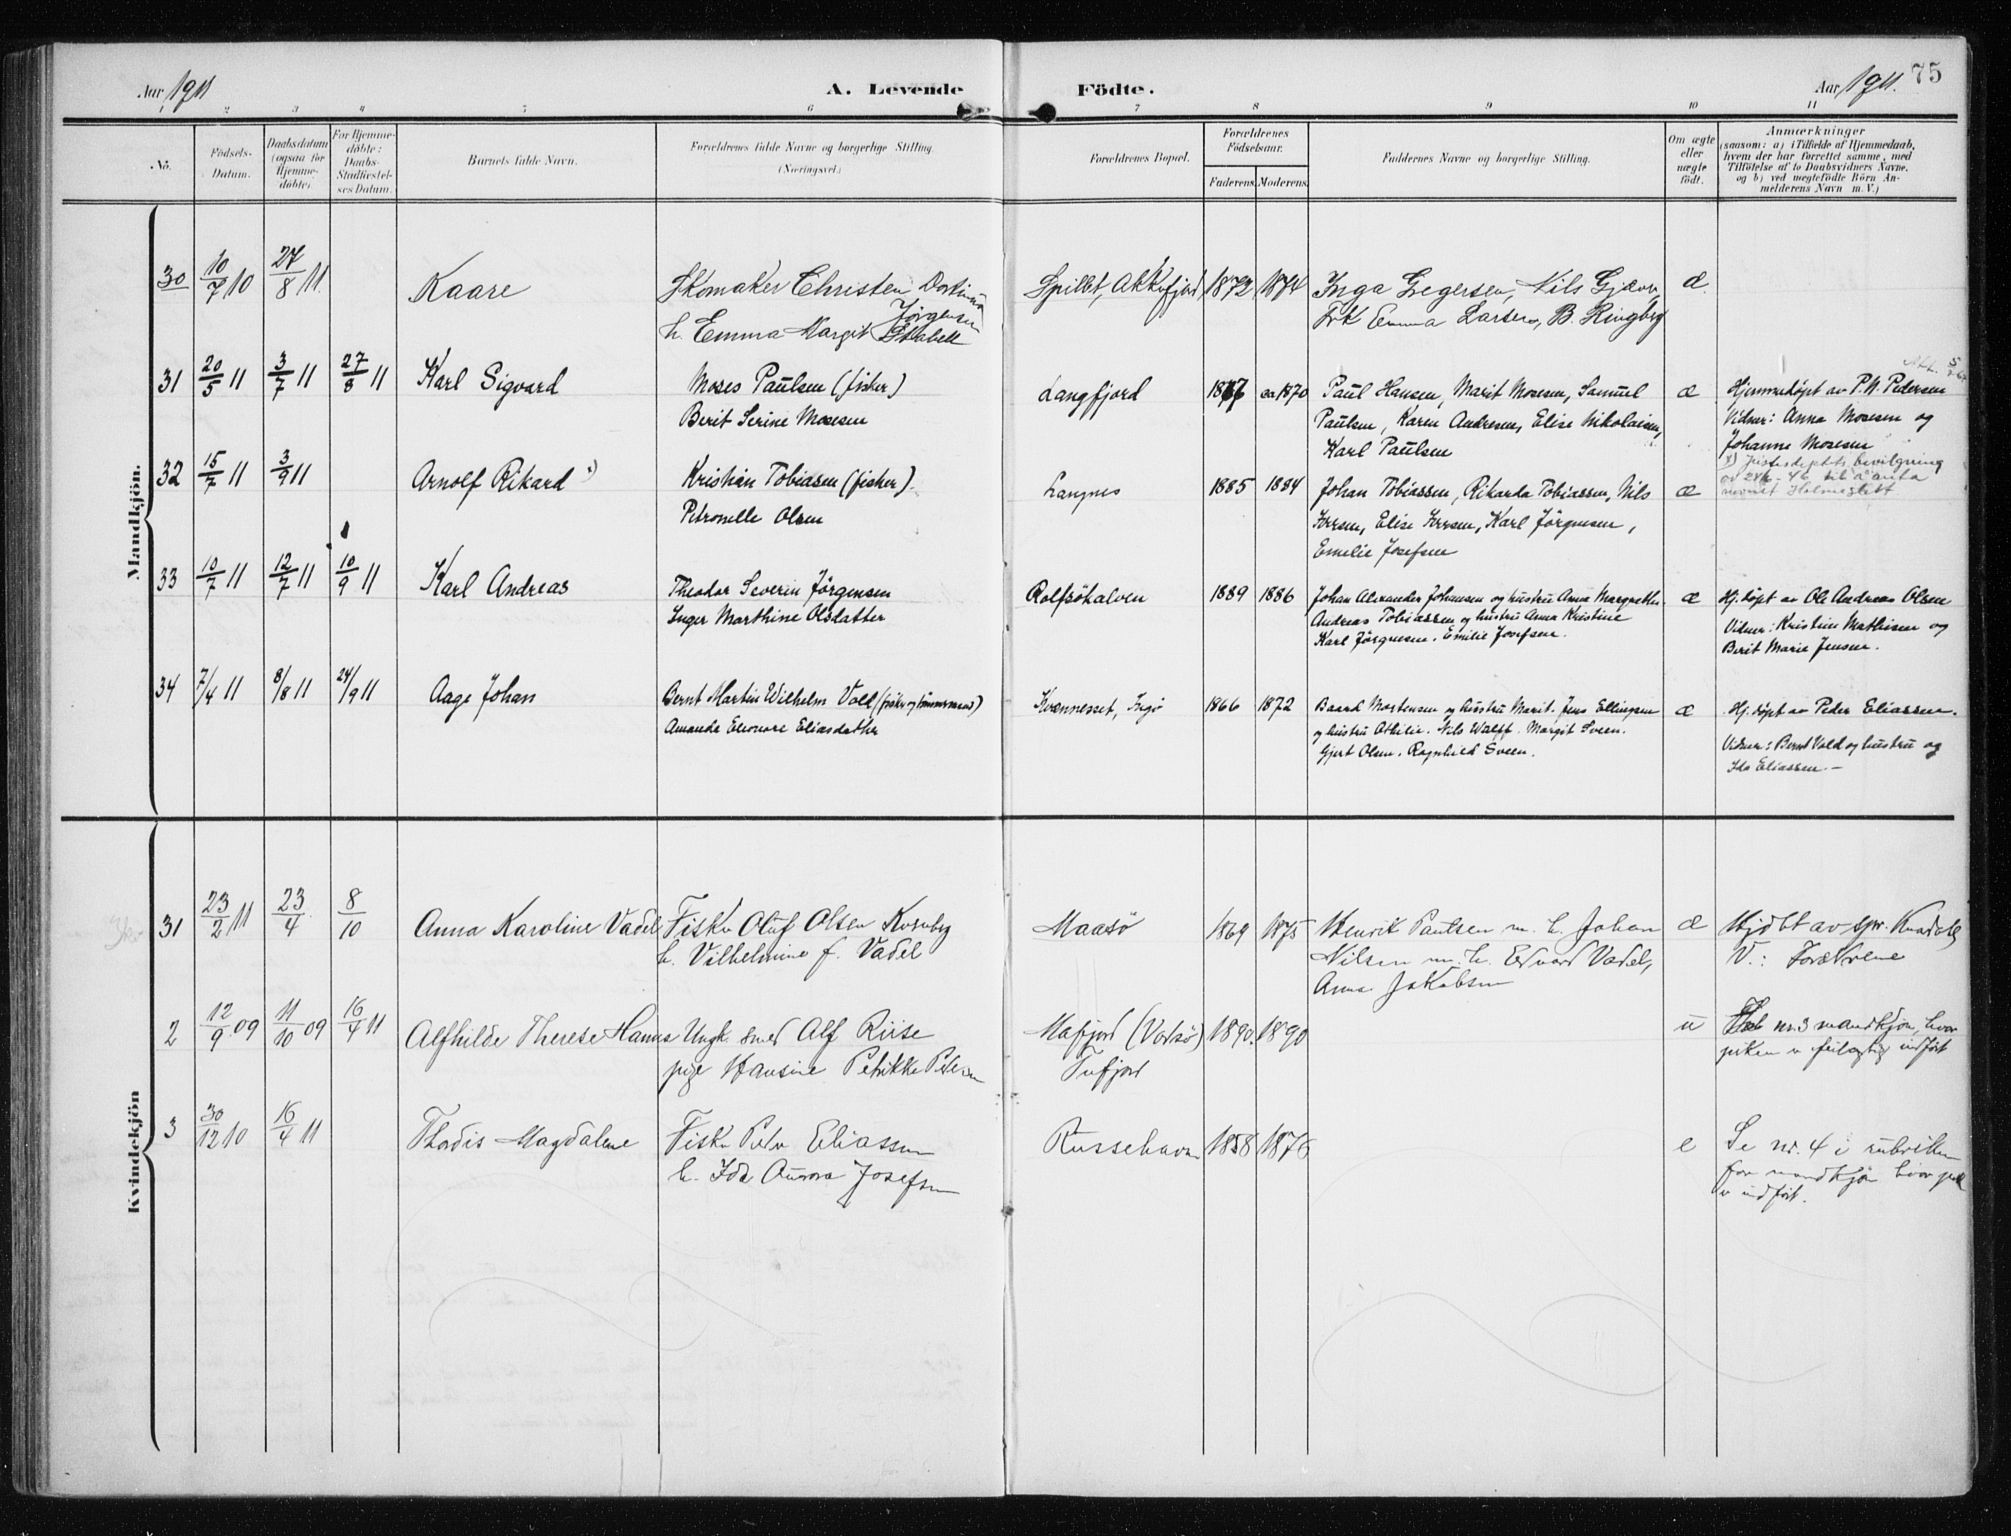 Aar 1911
A. Levende
Födte.
Aar 1911.
75
1 2 3 4 5 6 7 8 9 10 11
No.
Födsels-
Datum.
Daabsdatum
(ogsaa for
Hjemme-
döbte)
For Hjemme-
döbte:
Daabs-
Stadfæstel-
ses Datum.
Barnets fulde Navn.
Forældrenes fulde Navne og borgerlige Stilling.
(Næringsvei.)
Forældrenes Bopæl.
Forældrenes
Födselsaar.
Faderens. Moderens.
Faddernes Navne og borgerlige Stilling.
Om ægte
eller
uægte
födt.
Anmærkninger
(saasom: a) i Tilfælde af Hjemmedaab,
hvem der har forrettet samme, med
Tilföielse af to Daabsvidners Navne,
og b) ved uægtefödte Börn An-
melderens Navn m. V.)
Mandkjön.
30 10/7 10 27/8 11. Kaare Skomaker Christen
Jörgensen
h. Emma Margit
Akkefjord 1872 1874 Inga Gregersen, Nils
Frk Emma Larsen, B. Ringberg
æ.
31 20/5 11 3/7 11 27/8 11 Karl Sigvard Moses Paulsen (fisker)
Berit Serine Mosesen
Langfjord ca 1870 Paul Hansen, Marit Mosesen, Samuel
Paulsen, Karen Andresen, Elise Nikolaisen,
Karl Paulsen
æ Hjemmedøpt av P. N. Pedersen
Vidner: Anna Mosesen og
Johanne Mosesen
32 15/7 11 3/9 11 Arnolf Rikard x) Kristian Tobiasen (fisker).
Petronelle Olsen
Langnes 1885 1884 Johan Tobiassen, Rikarda Tobiassen, Nils
Iversen, Elise Iversen, Karl Jörgensen,
Emilie Josefsen
æ x) Justisdeptets bevilgning
av til å anta
navnet Holmeslett
33 10/7 11 12/7 11 10/9 11 Karl Andreas Theodor Severin Jörgensen
Inger Marthine Olsdatter
Rolfsöhalven 1889 1886 Johan Alexander Johansen og hustru Anna Margrethe.
Andreas Tobiassen og hustru Anna Kristine
Karl Jörgensen. Emilie Josefsen.
æ Hj. döpt av Ole Andreas Olsen
Vidner: Kristine Mathisen og
Berit Marie Jensen.
34 7/4 11 8/8 11 24/9 11 Aage Johan Bernt Martin Wilhelm Vold (fisker og tömmermand)
Amanda Eleonore Eliasdatter
Kvænneset, Ingö 1866 1872 Baard Mortensen og hustru Marit. Jens Ellingsen
og hustru Athilie. Nils Walff. Margit Sveen.
Gjert Olsen. Ragnhild Sveen.
æ Hj. döpt av Peder Eliassen.
Vidner: Bernt Vold og hustru og
Ida Eliassen.—
Kvindekjön
31 23/2 11 23/4 8/10 Anna Karoline Vadel Fisker Oluf Olsen
h. Vilhelmine f. Vadel
Maasö 1869 1875 Henrik Paulsen m. h. Johan
Nilsen m. h. Edvard Vadel,
Anna Jakobsen
æ Hjdbt av spr.
V.: Forældrene
2 12/9 09 11/10 09 16/4 11 Alfhilde Therese Hanna Ungk. smed Alf Riise
pige Hansine Petrikke
Mafjord (Vardö)
Tufjord
1890. 1890
u nr. 3 mandkjön, hvor
piken er feilagtig indfört
3 30/12 10 16/4 11 Thordis Magdalene Fisker Peder Eliassen
h. Ida Aurora Josefsen
Russehavn 1858 1876
e Se nr. 4 i rubrikken
for mandkjön hvor
er indfört.